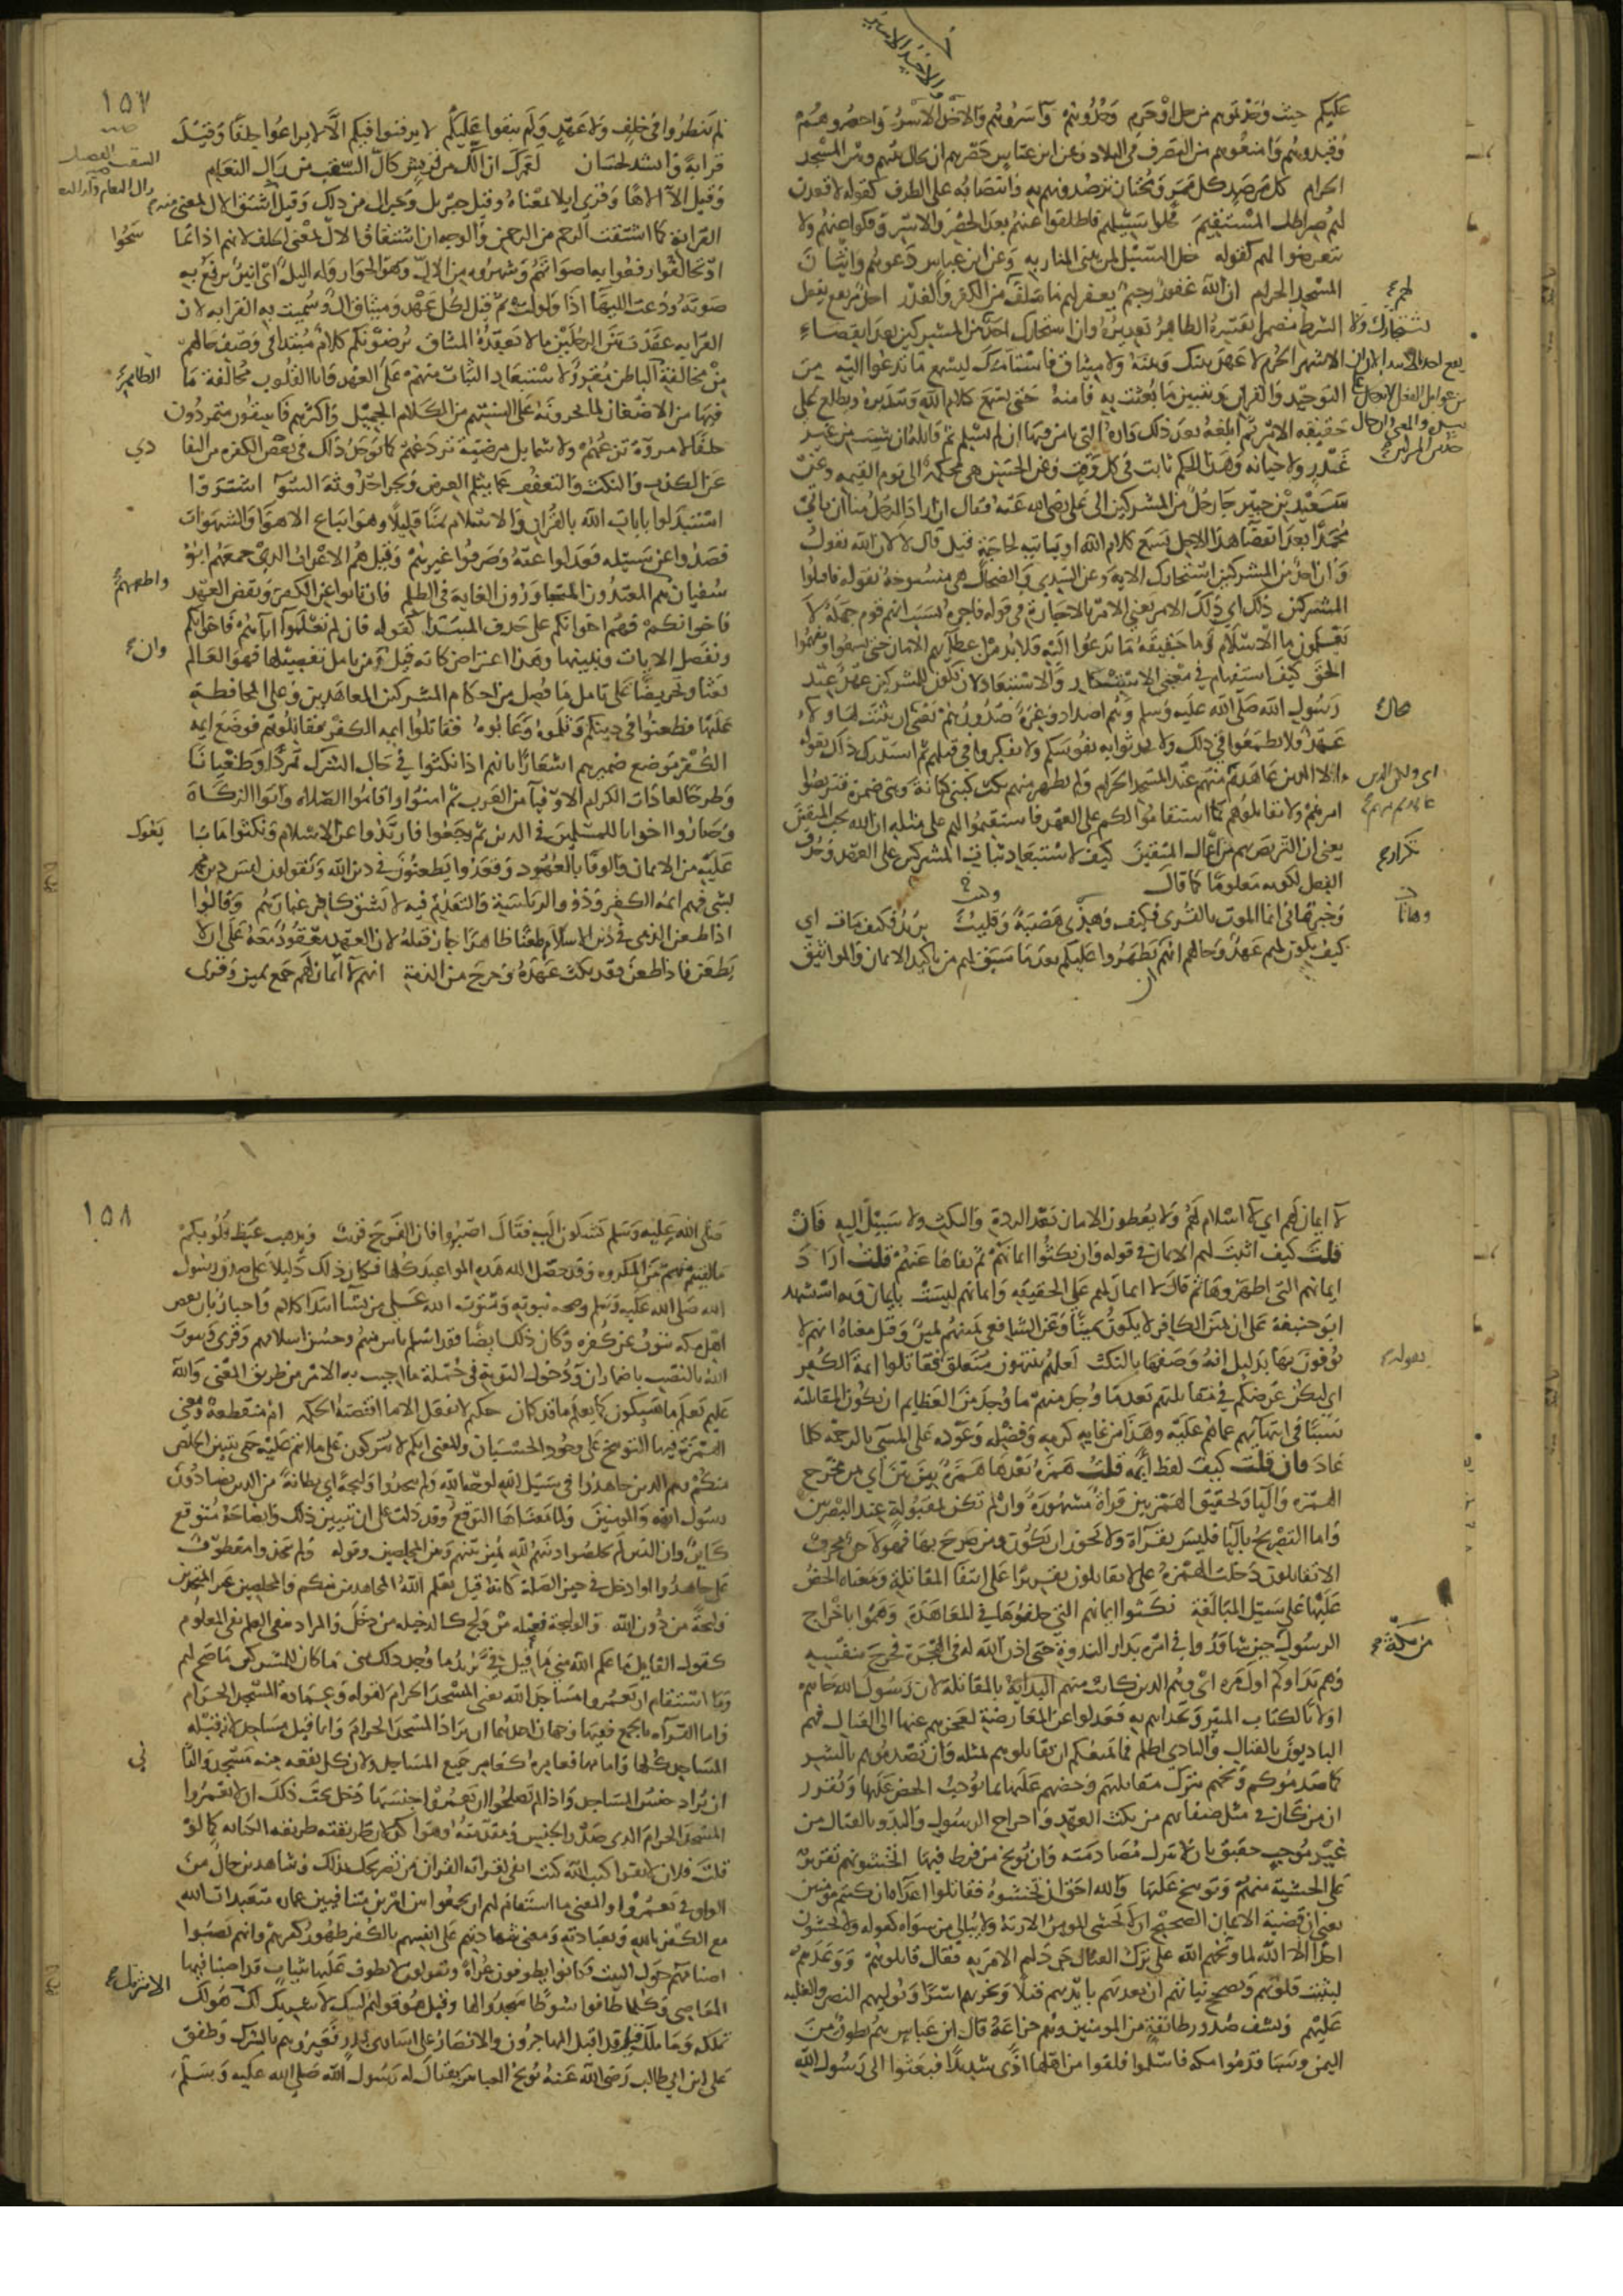 عليكم حيث وجدتموهم من حل او حرم وخذوهم وأسروهم والاخذ الاسر واحصروهم
وقيدوهم وامنعوهم من التصرف في البلاد وعن ابن عباس حصرهم ان يحال بينهم وبين المسجد
الحرام كل مرصد كل ممر ومجتاز ترصدونهم به وانتصابه على الظرف كقوله لاقعدن
لهم صراطك المستقيم فخلوا سبيلهم فاطلقوا عنهم بعد الحصر والاسر او فكفوا عنهم ولا
تتعرضوا لهم كقوله خل السبيل لمن يبني المنار به وعن ابن عباس دعوهم واتيان
المسجد الحرام ان الله غفور رحيم يغفر لهم ما سلف من الكفر والغدر احد مرتفع بفعل
الشرط مضمرا يفسره الظاهر تقديره وان استجارك احد من المشركين بعد انقضاء
الاشهر الحرم لا عهد بينك وبينه ولا ميثاق فاستأمنك ليسمع ما تدعوا اليه من
التوحيد والقران وتبين ما بعثت به فامنه حتى يسمع كلام الله ويتدبره ويطلع على
حقيقة الامر ثم ابلغه بعد ذلك داره التي يامن فيها ان لم يسلم ثم قاتله ان شئت من غير
غدر ولا خيانة وهذا الحكم ثابت في كل وقت وعن الحسن هي محكمة الى يوم القيمة وعن
سعيد بن جبير جا رجل من المشركين الى علي رضي الله عنه فقال ان اراد الرجل منا ان ياتي
محمدا بعد انقضا هذا الاجل يسمع كلام الله او ياتيه لحاجة قتل قال لا لان الله يقول
وان احد من المشركين استجارك الاية وعن السدي والضحاك هي منسوخة بقوله فاقتلوا
المشركين ذلك اي ذلك الامر يعني الامر بالاجارة في قوله فاجره بسبب انهم قوم جهلة لا
يعلمون ما الاسلام وما حقيقة ما تدعوا اليه فلابد من اعطائهم الامان حتى يسمعوا ويفهموا
الحق كيف استفهام في معنى الاستنكار والاستبعاد لان يكون للمشركين عهد عند
رسول الله صلى الله عليه وسلم وهم اضداد وغرة صدورهم يعني ان يثبت لهم ولاء
عهد فلا تطمعوا في ذلك ولا تحدثوا به نفوسكم ولا تفكروا في قتلهم ثم استدرك ذلك بقوله
الا الذين عاهدتم منهم عند المسجد الحرام ولم يظهر منهم نكث كبني كنانة وبني ضمرة فتربصوا
امرهم ولا تقاتلوهم فما استقاموا لكم على العهد فاستقيموا لهم على مثله ان الله يحب المتقين
يعني ان التربص بهم من اعمال المتقين كيف لاستبعاد ثبات المشركين على العهد وحذف
الفعل لكونه معلوما كما قال
وخبرتماني انما الموت بالقرى فكيف وهذي هضبة وقليب يريد فكيف مات اي
كيف يكون لهم عهد وحالهم انهم ان يظهروا عليكم بعد ما سبق لهم من تاكيد الايمان والمواثيق
١٥٧
لم ينظروا في حلف ولا عهد ولم يبقوا عليكم لا يرقبوا فيكم الا لا يراعوا حلفا وقيل
قرابة وانشد لحسان لعمرك ان الك من قريش كال السقب من رال النعام
وقيل الا الاها وقرئ ايلا بمعناه وقيل جبريل وجبرال من ذلك وقيل اشتق الال بمعنى
القرابة كما اشتقت الرحم من الرحمن والوجه ان اشتقاق الال بمعنى الحلف لانهم اذا تما
سحوا
وتحالفوا رفعوا به اصواتهم وشهروه من الال وهو الجوار وله اليل اي انين يرفع به
صوته ودعت الليها اذا ولولت ثم قيل لكل عهد وميثاق ال وسميت به القرابة لان
القرابة عقدت بين الرجلين ما لا يعقده الميثاق يرضونكم كلام مبتدا في وصف حالهم
من مخالفة الباطن الظاهر مقرر لاستبعاد الثبات منهم على العهد واباء القلوب مخالفة ما
فيها من الاضغان لما يجرونه على السنتهم من الكلام الجميل واكثرهم فاسقون متمردون
خلعاء لا مروة تزعمهم ولا شمايل مرضية تردعهم كما يوجد ذلك في بعض الكفرة من التفا
دي
عن الكذب والنكث والتعفف عما يثلم العرض ويجر احدوثة السوء اشتروا
استبدلوا بايات الله بالقران والاسلام ثمنا قليلا وهو اتباع الاهوا والشهوات
فصدوا عن سبيله فعدلوا عنه وصرفوا غيرهم وقيل هم الاعراب الذين جمعهم ابو
سفيان واطعمهم هم المعتدون المتجاوزون الغاية في الظلم فان تابوا عن الكفر ونقض العهد
فاخوانكم فهم اخوانكم على حذف المبتدا كقوله فان لم تعلموا آباءهم فاخوانكم
ونفصل الايات ونبينها وهذا اعتراض كانه قيل وان من تامل تفصيلها فهو العالم
بعثا وتحريضا على تامل ما فصل من احكام المشركين المعاهدين وعلى المحافظة
عليها وطعنوا في دينكم وثلموه وعابوه فقاتلوا ايمة الكفر فقاتلوهم فوضع ايمة
الكفر موضع ضميرهم اشعارا بانهم اذا نكثوا في حال الشرك تمردا وطغيانا
وطرحا لعادات الكرام الاوفياء من العرب ثم امنوا واقاموا الصلاة وآتوا الزكاة
وصاروا اخوانا للمسلمين في الدين ثم رجعوا فارتدوا عن الاسلام ونكثوا ما با
يعوك
عليه من الايمان والوفا بالعهود وقعدوا يطعنون في دين الله ويقولون ليس دين محمد
بشي فهم ايمة الكفر وذوو الرياسة والتقدم فيه لا يشق كافر غبارهم وقالوا
اذا طعن الذمي في دين الاسلام طعنا ظاهرا جاز قتله لان العهد معقود معه على ان لا
يطعن فاذا طعن فقد نكث عهده وخرج من الذمة انهم لا أيمان لهم جمع يمين وقرئ
لا ايمان لهم اي لا اسلام لهم ولا يعطون الامان بعد الردة والنكث ولا سبيل اليه فان
قلت كيف اثبت لهم الايمان في قوله وان نكثوا ايمانهم ثم نفاها عنهم قلت اراد
ايمانهم التي اظهروها ثم قال لا ايمان لهم على الحقيقة وايمانهم ليست بايمان وبه استشهد
ابو حنيفة على ان يمين الكافر لا يكون يمينا وعن الشافعي يمينهم يمين وقال معناه انهم لا
يوفون بها بدليل انه وصفها بالنكث لعلهم ينتهون متعلق بفقاتلوا ايمة الكفر
اي ليكن غرضكم في مقاتلتهم بعد ما وجد منهم ما وجد من العظايم ان تكون المقاتلة
سببا في انتهائهم عما هم عليه وهذا من غاية كرمه وفضله وعوده على المسئ بالرحمة كلما
عاد فان قلت كيف لفظ أيمة قلت همزة بعدها همزة بين بين اي بين مخرج
الهمزة واليا وتحقيق الهمزتين قراءة مشهورة وان لم تكن بمقبولة عند البصريين
واما التصريح بالياء فليس بقراءة ولا يجوز ان تكون ومن صرح بها فهو لاحن محرف
الا تقاتلون دخلت الهمزة على لا تقاتلون تقريرا على انتفا المقاتلة ومعناه الحض
عليها على سبيل المبالغة نكثوا ايمانهم التي حلفوها في المعاهدة وهموا باخراج
الرسول من مكة حين تشاوروا في امره بدار الندوة حتى اذن الله له في الهجرة فخرج بنفسه
وهم بدءوكم اول مرة اي وهم الذين كانت منهم البداية بالمقاتلة لان رسول الله جاءهم
اولا بالكتاب المنير وتحداهم به فعدلوا عن المعارضة لعجزهم عنها الى القتال فهم
البادءون بالقتال والبادي اظلم فما يمنعكم ان تقاتلوهم بمثله وان تصدموهم بالشر
كما صدموكم وبخهم بترك مقاتلتهم وحضهم عليها بما يوجب الحض عليها ويقرر
ان من كان في مثل صفاتهم من نكث العهد واخراج الرسول والبدو بالقتال من
غير موجب حقيق بان لا تترك مصادمته وان يوبخ من فرط فيها اتخشونهم تقرير
على الخشية منهم وتوبيخ عليها والله احق ان تخشوه فقاتلوا اعداءه ان كنتم مومنين
يعني ان قضية الايمان الصحيح ان لا يخشى المومن الا ربه ولا يبالي بمن سواه كقوله ولا يخشون
احدا الا الله لما وبخهم الله على ترك القتال جرد لهم الامر به فقال قاتلوهم ووعدهم
ليثبت قلوبهم ويصحح نياتهم انه يعذبهم بايديهم قتلا ويخزيهم اسرا ويوليهم النصر والغلبة
عليهم ويشف صدور طائفة من المومنين وهم خزاعة قال ابن عباس هم بطون من
اليمن وسبا قدموا مكة فاسلموا فلقوا من اهلها اذى شديدا فبعثوا الى رسول الله
١٥٨
صلى الله عليه وسلم يشكون اليه فقال ابشروا فان الفرج قريب ويذهب غيظ قلوبكم
ما لقيتم منهم من المكروه وقد حصل الله هذه المواعيد كلها فكان ذلك دليلا على صدق رسول
الله صلى الله عليه وسلم وصحة نبوته ويتوب الله على من يشآ ابتدا كلام واخبار بان بعض
اهل مكة يتوب عن كفره وكان ذلك ايضا فقد اسلم ناس منهم وحسن اسلامهم وقرئ ويتوب
الله بالنصب باضمار ان ودخول التوبة في جملة ما اجيب به الامر من طريق المعنى والله
عليم يعلم ما سيكون كما يعلم ما قد كان حكيم لا يفعل الا ما اقتضته الحكمة ام منقطعة ومعنى
الهمزة فيها التوبيخ على وجود الحسبان والمعنى انكم لا تتركون على ما انتم عليه حتى يتبين الخلص
منكم وهم الذين جاهدوا في سبيل الله لوجه الله ولم يتخذوا وليجة اي بطانة من الذين يضادون
رسول الله والمومنين ولما معناها التوقع وقد دلت على ان تبيين ذلك وايضاحه متوقع
كاين وان الذين لم يخلصوا دينهم لله يميز بينهم وبين المخلصين وقوله ولم يتخذوا معطوف
على جاهدوا داخل في حيز الصلة كانه قيل ولما يعلم الله المجاهدين منكم والمخلصين غير المتخذين
وليجة من دون الله والوليجة فعيلة من ولج كالدخيلة من دخل والمراد بنفي العلم نفي المعلوم
كقول القايل ما علم الله مني ما قيل في يريد ما وجد ذلك مني ما كان للمشركين ما صح لهم
وما استقام ان يعمروا مساجد الله يعني المسجد الحرام لقوله وعمارة المسجد الحرام
واما القراءة بالجمع ففيها وجهان احدهما ان يراد المسجد الحرام وانما قيل مساجد لانه قبلة
المساجد كلها وامامها فعامره كعامر جميع المساجد ولان كل بقعة منه مسجد والثا
ني
ان يراد جنس المساجد واذا لم يصلحوا ان يعمروا جنسها دخل تحت ذلك ان لا يعمروا
المسجد الحرام الذي هو صدر الجنس ومقدمته وهو آكد لان طريقته طريقة الكناية كما لو
قلت فلان لا يقرا كتب الله كنت انفى لقراءته القران من تصريحك بذلك وشاهدين حال من
الواو في يعمروا والمعنى ما استقام لهم ان يجمعوا بين امرين متنافيين عمارة متعبدات الله
مع الكفر بالله وبعبادته ومعنى شهادتهم على انفسهم بالكفر ظهور كفرهم وانهم نصبوا
اصنامهم حول البيت وكانوا يطوفون عراة ويقولون لا نطوف عليها بثياب قد اصبنا فيها
المعاصي وكلما طافوا شوطا سجدوا لها وقيل هو قولهم لبيك لا شريك لك الا شريك هو لك
تملكه وما ملك قيل قد اقبل المهاجرون والانصار على اسارى بدر فعيروهم بالشرك وطفق
علي ابن ابي طالب رضي الله عنه يوبخ العباس بقتال رسول الله صلى الله عليه وسلم